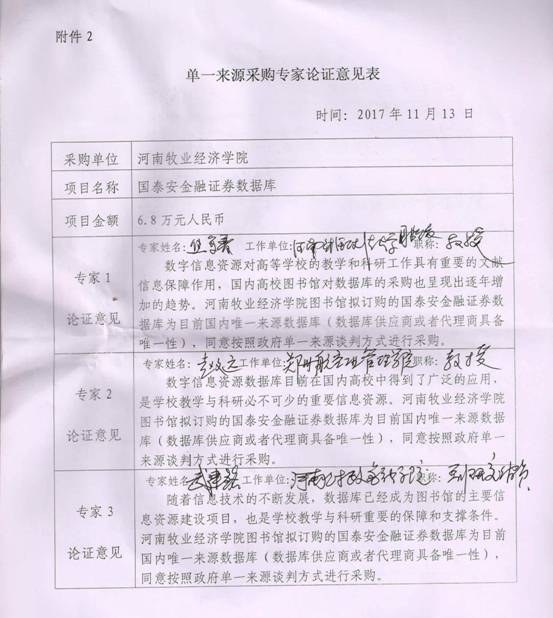 附件2
单一来源采购专家论证意见表
时间：2017年11月13日
采购单位 河南牧业经济学院
项目名称 国泰安金融证券数据库
项目金额 6.8万元人民币
专家姓名: 工作单位: 职称: 教授
数字信息资源对高等学校的教学和科研工作具有重要的文献
专家 1 信息保障作用，国内高校图书馆对数据库的采购也呈现出逐年增
加的趋势。河南牧业经济学院图书馆拟订购的国泰安金融证券数
论证意见 据库为目前国内唯一来源数据库（数据库供应商或者代理商具备
唯一性），同意按照政府单一来源谈判方式进行采购。
专家姓名: 工作单位: 郑州航空工业管理学院 职称: 教授
数字信息资源数据库目前在国内高校中得到了广泛的应用，
专家 2 是学校教学与科研必不可少的重要信息资源。河南牧业经济学院
图书馆拟订购的国泰安金融证券数据库为目前国内唯一来源数
论证意见 据库（数据库供应商或者代理商具备唯一性），同意按照政府单一
来源谈判方式进行采购。
专家姓名: 工作单位: 职称: 副研究馆员
随着信息技术的不断发展，数据库已经成为图书馆的主要信
专家 3 息资源建设项目，也是学校教学与科研重要的保障和支撑条件。
河南牧业经济学院图书馆拟订购的国泰安金融证券数据库为目前
论证意见 国内唯一来源数据库（数据库供应商或者代理商具备唯一性），
同意按照政府单一来源谈判方式进行采购。